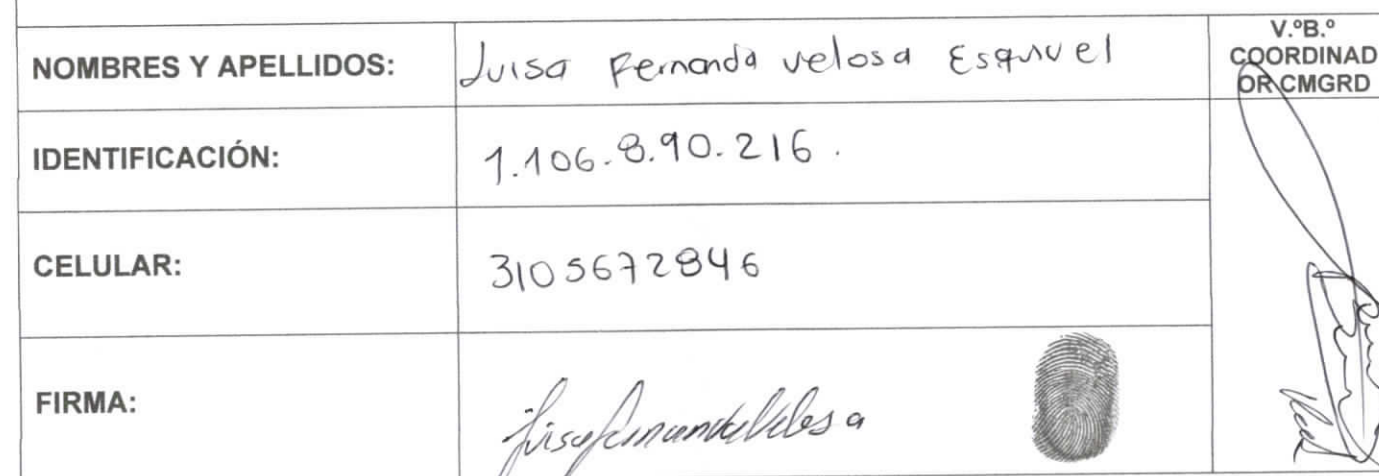 NOMBRES Y APELLIDOS: Luisa Fernanda velosa Esquivel
V.ºB.º
COORDINAD
OR CMGRD
IDENTIFICACIÓN: 1.106.8.90.216.
CELULAR: 3105672846
FIRMA: